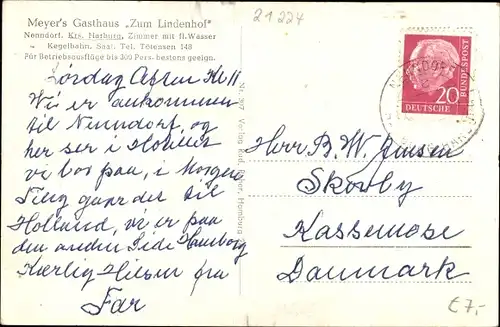 21224
Meyer's Gasthaus „Zum Lindenhof"
Nenndorf, Krs. Harburg, Zimmer mit fl. Wasser
Kegelbahn, Saal. Tel. Tötensen 148
Für Betriebsausflüge bis 300 Pers. bestens geeign.
Lördag Aften Kl 11
Vi er ankommen
til Nenndorf, og
her ser i Hotellet
vi bor paa, i Morgen
Tidlig gaar det til
Holland, vi er paa
den anden Side Hamborg
Kærlig Hilsen fra
Far
Verlag
Hamburg
20
DEUTSCHE BUNDESPOST
Herr B. W. Jensen
Skovby
Kassemose
Danmark
€7,-